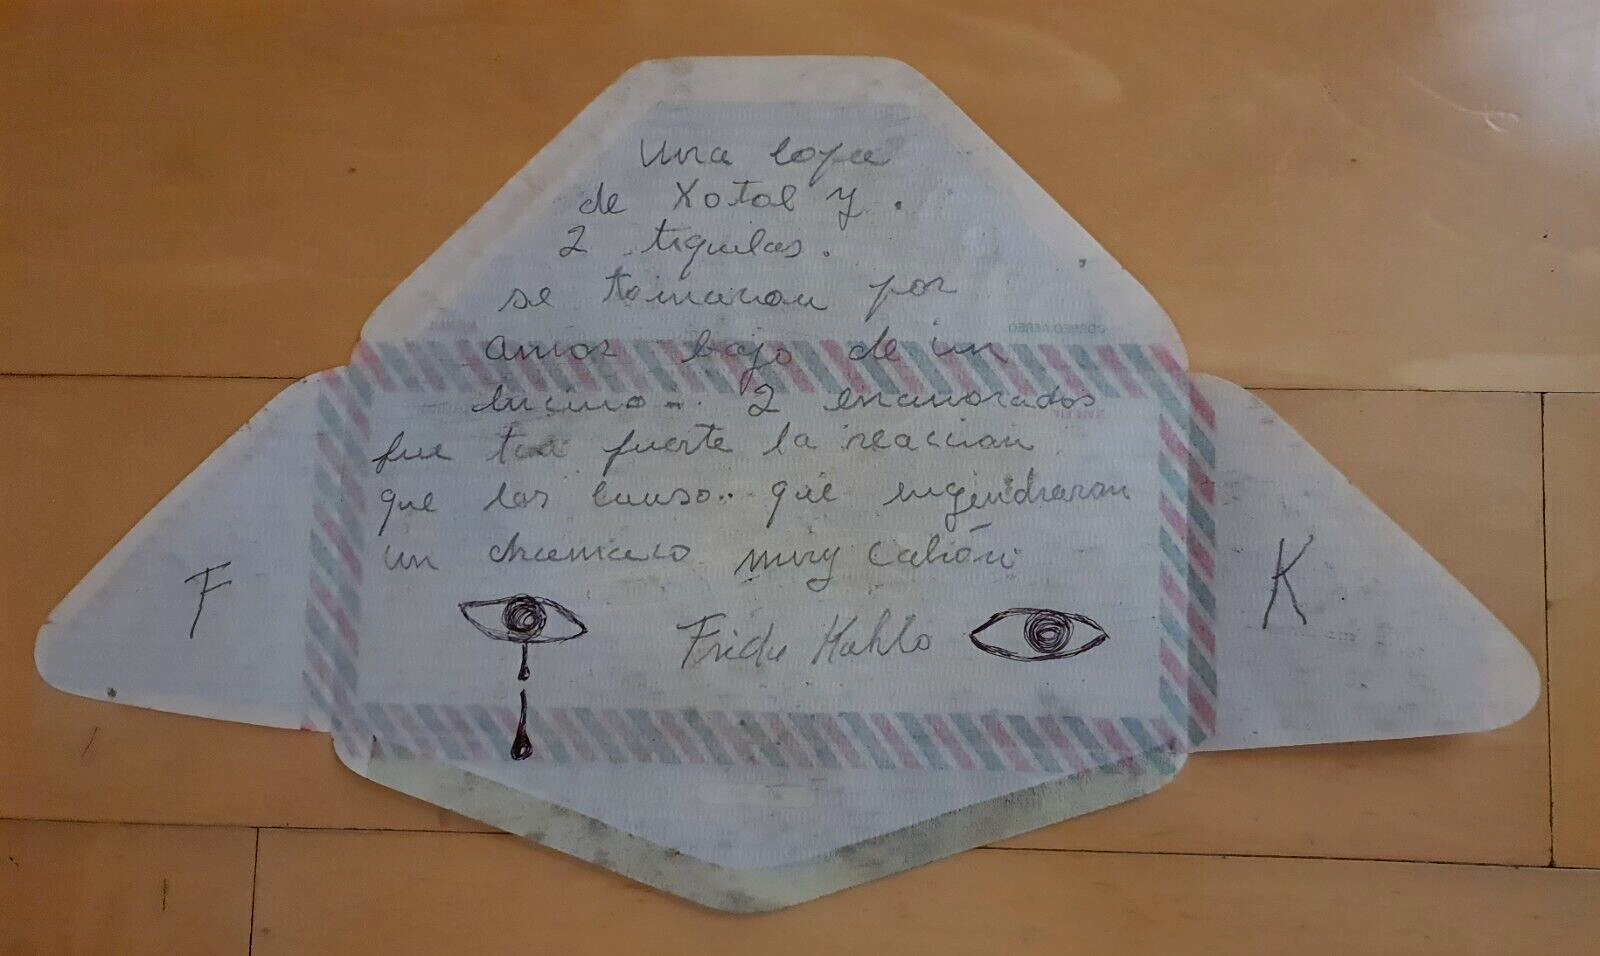 Una copa
de Xotol y.
2 tequilas.
se tomaron por
amor bajo de un
encino.. 2 enamorados
fue tan fuerte la reaccion
que los causo.. que engendraron
un chamaco muy cabrón
F
Frida Kahlo
K
CORREO AEREO